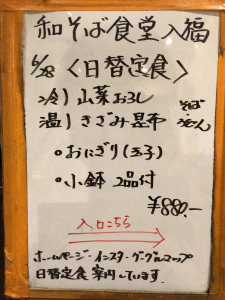 和そば食堂入福
6/28〈日替定食〉
冷)山菜おろし
温)きざみ昆布
そば
うどん
•おにぎり(玉子)
•小鉢 2品付
¥880.-
入口こちら
ホームページ・インスタ・グーグルマップ
日替定食案内しています。